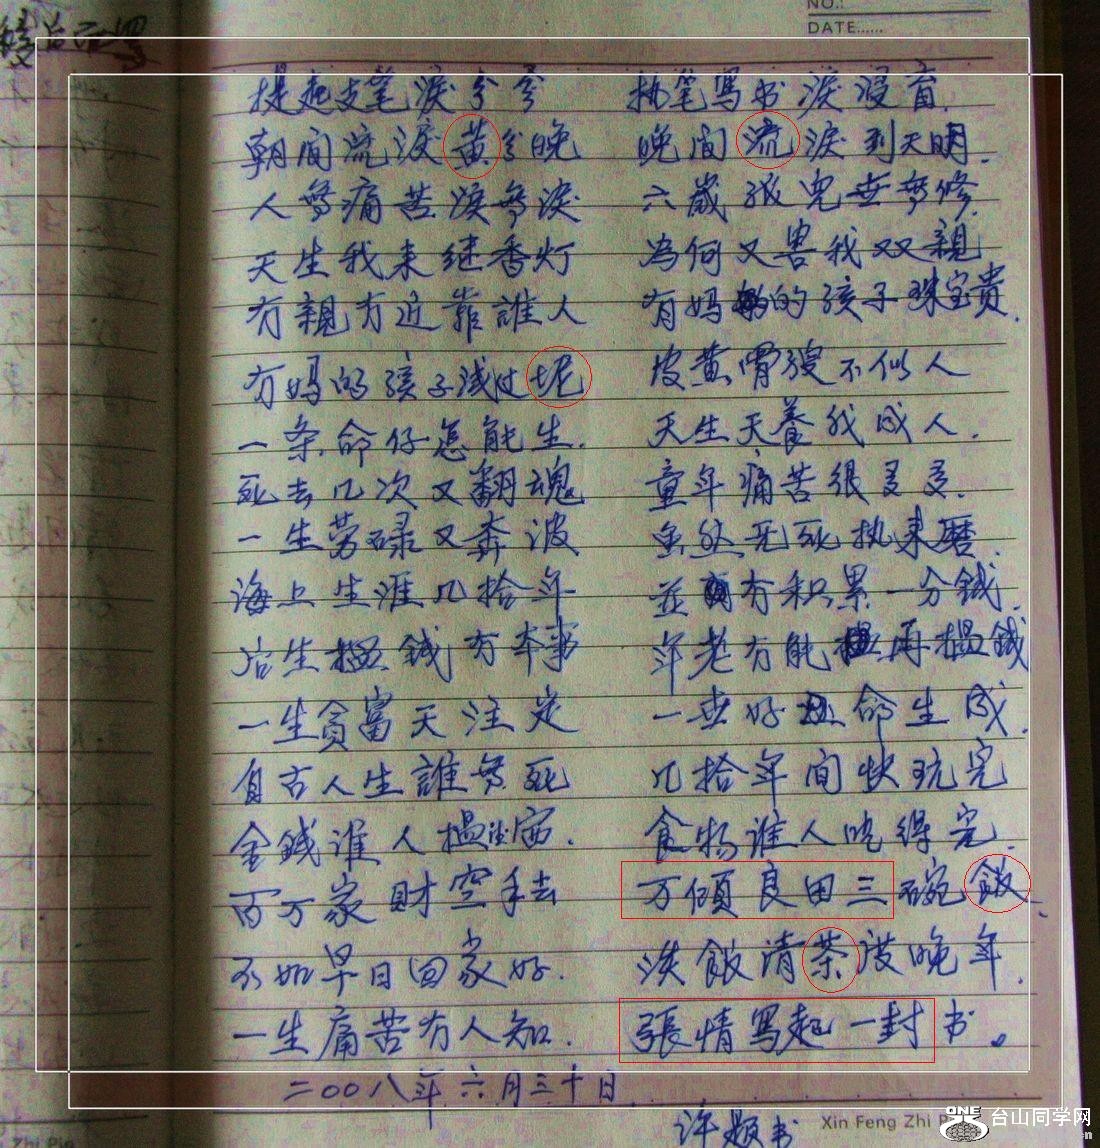 NO.:
DATE......
提起支笔淚兮兮 执笔写书淚浸育.
朝间流淚黄兮晚 晚间流淚到天明.
人无痛苦淚无淚 六岁孤儿世无修.
天生我来继香灯 為何又害我双親
有親有近靠誰人 有妈的孩子珠宝贵.
有妈的孩子浅过坭 皮黄骨瘦不似人
一条命仔怎能生. 天生天養我成人.
死去几次又翻魂 童年痛苦很多多.
一生劳碌又奔波 虽然无死执来磨.
海上生涯几拾年 並有积累一分錢.
后生揾錢有本事 年老有能再揾錢
一生貧富天注定 一世好丑命生成.
自古人生誰无死 几拾年间快玩完
金錢谁人揾谂洒. 食物谁人吃得完.
百万家財空手去 万傾良田三碗飯.
不如早日回家好. 淡飯清茶渡晚年.
一生痛苦有人知. 張情写起一封书。
二00八年六月三十日.
许题书
Xin Feng Zhi P
Zhi Pin
ONE
台山同学网